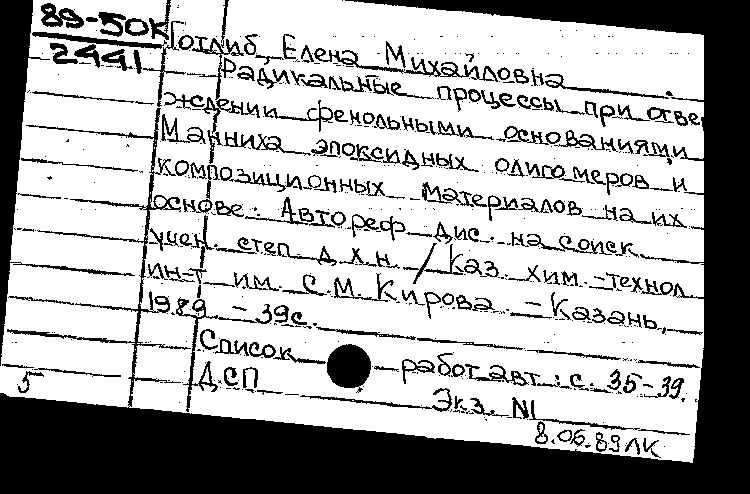 89-50К
2441
Готлиб, Елена Михайловна
Радикальные процессы при отве
ждении фенольными основаниями
Манниха эпоксидных олигомеров и
композиционных материалов на их
основе: Автореф. дис. на соиск.
учен. степ. д.х.н. / Каз. хим.-технол.
ин-т им. С.М. Кирова. - Казань,
1989. - 39с.
Список работ авт.: с. 35-39.
ДСП
5
Экз. N1
8.06.89 ЛК